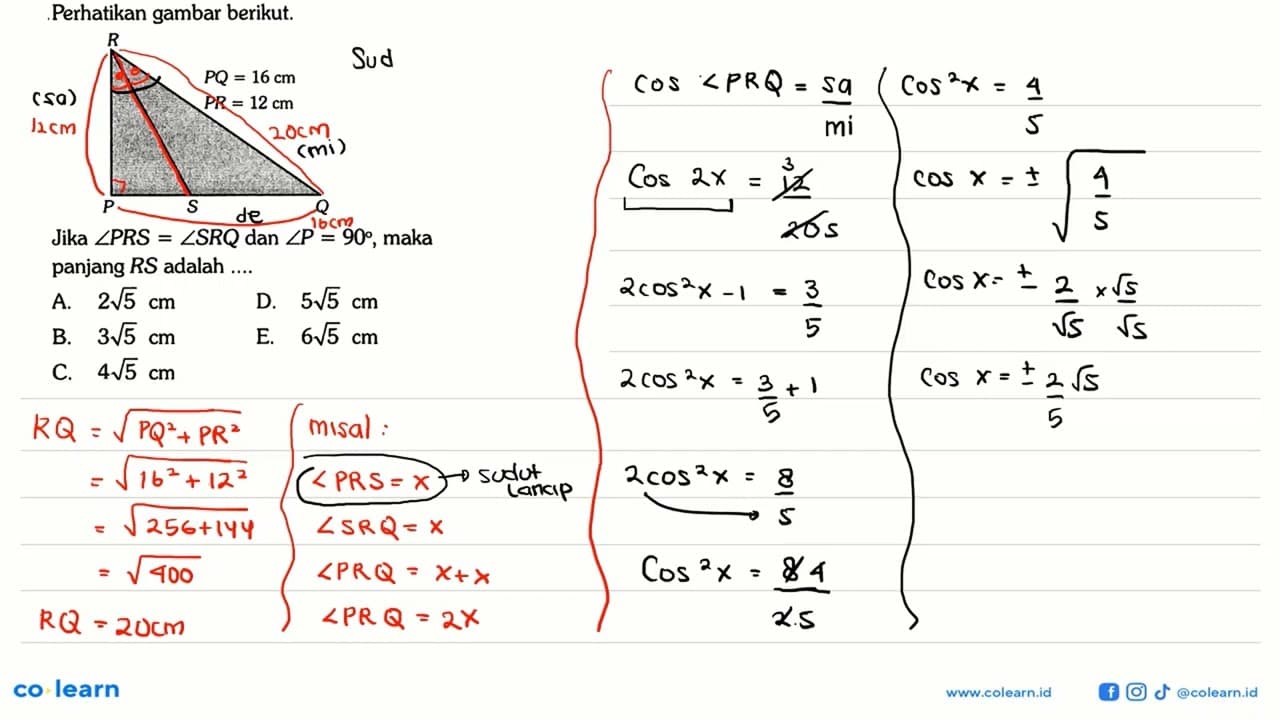 .Perhatikan gambar berikut.
R
PQ = 16 cm
PR = 12 cm
(sa)
12cm
20cm
(mi)
P S Q
de
16cm
Sud
Jika ∠PRS = ∠SRQ dan ∠P = 90°, maka
panjang RS adalah ....
A. 2√5 cm D. 5√5 cm
B. 3√5 cm E. 6√5 cm
C. 4√5 cm
RQ = √PQ² + PR²
= √16² + 12²
= √256+144
= √400
RQ = 20cm
misal :
∠PRS = x → sudut lancip
∠SRQ = x
∠PRQ = x+x
∠PRQ = 2x
cos ∠PRQ = sa/mi
Cos 2x = 12/20 3/5
2cos²x - 1 = 3/5
2cos²x = 3/5 + 1
2cos²x = 8/5
Cos²x = 8 4/2.5
Cos²x = 4/5
cos x = ± √4/5
Cos x = ± 2/√5 x √5/√5
Cos x = ± 2/5 √5
co learn
www.colearn.id
@colearn.id